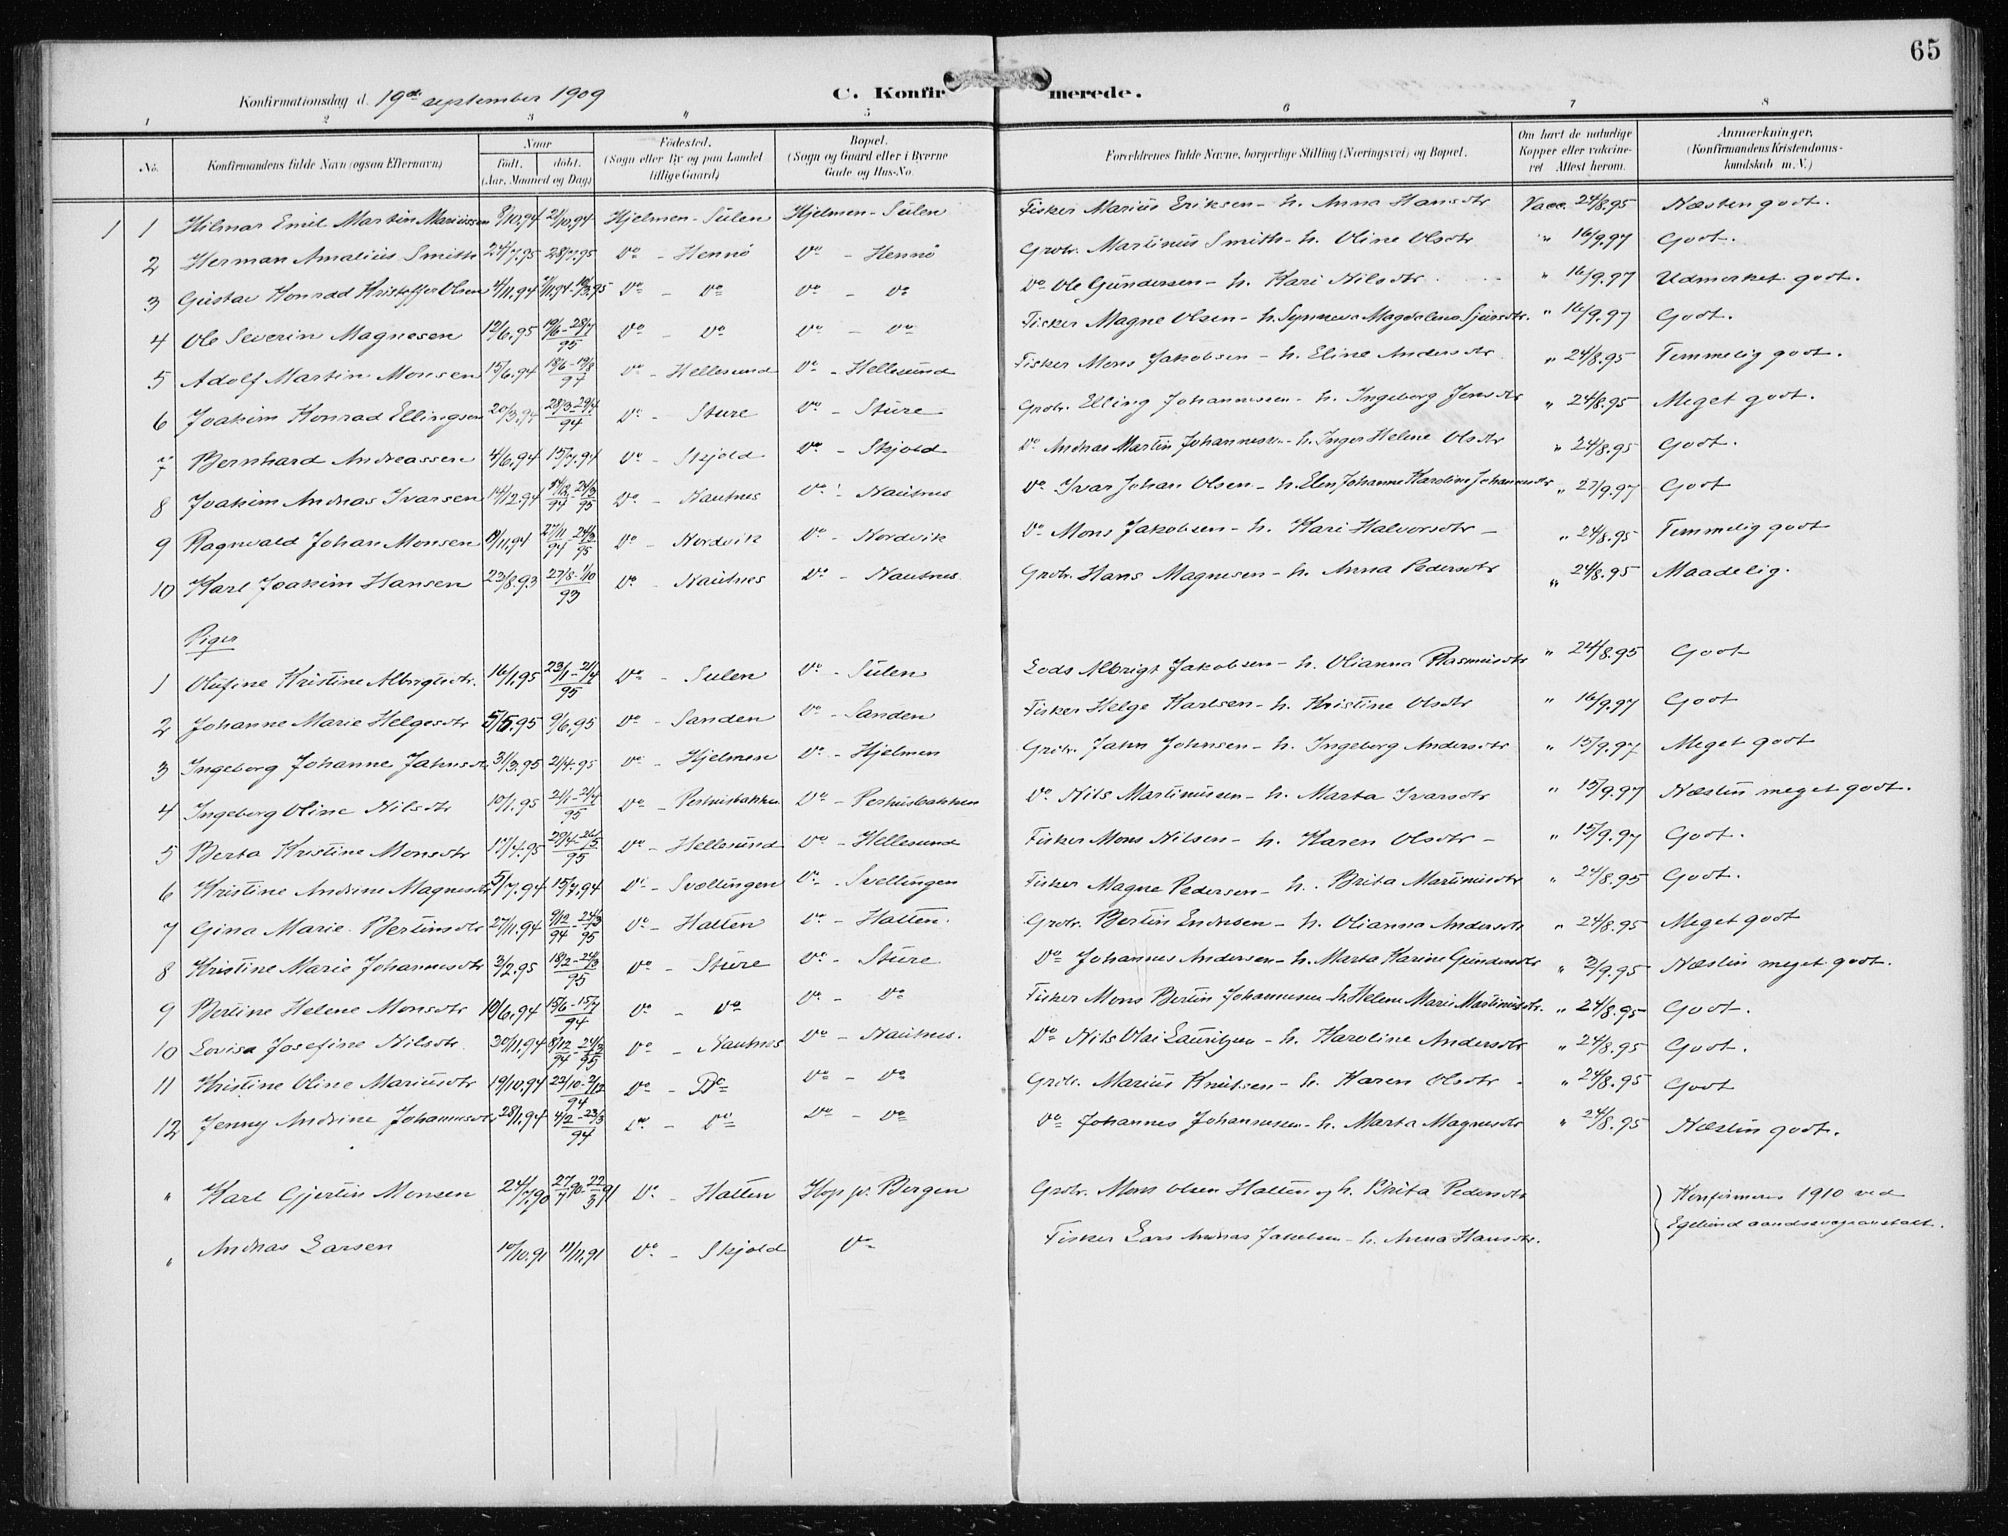 65
Konfirmationsdag d. 19de september 1909
C. Konfirmerede.
1 2 3 4 5 6 7 8
No. Konfirmandens fulde Navn (ogsaa Efternavn) Naar født. døbt. (Aar, Maaned og Dag) Fødested. (Sogn eller By og paa Landet tillige Gaard) Bopæl. (Sogn og Gaard eller i Byerne Gade og Hus-No. Forældrenes fulde Navne, borgerlige Stilling (Næringsvei) og Bopæl. Om havt de naturlige Kopper eller vaccineret Attest herom. Anmærkninger. (Konfirmandens Kristendomskundskab m. V.)
1 1 Hilmar Emil Martin Mariussen 8/10.94 21/10.94 Hjelmen - Sulen Hjelmen - Sulen Fisker Marius Eriksen - h. Anna Hansdtr Vacc. 24/8.95 Næsten godt.
2 Herman Amalius Smith 24/7.95 28/7.95 Do - Hennö Do - Hennö Grdbr. Martinus Smith - h. Oline Olsdtr " 16/9.97 Godt.
3 Gustav Konrad Kristoffer Olsen 4/11.94 Do - Do Do - Do Do Ole Gundersen - h. Kari Nilsdtr " 16/9.97 Udmerket godt.
4 Ole Severin Magnesen 12/6.95 19/6 - 28/7 95 Do - Do Do - Do Fisker Magne Olsen - h. Synneva Magdalena Sjursdtr. " 16/9.97 Godt.
5 Adolf Martin Monsen 15/6.94 18/6 - 19/8 94 Do - Hellesund Do - Hellesund Fisker Mons Jakobsen - h. Eline Andersdtr " 24/8.95 Temmelig godt.
6 Joakim Konrad Ellingsen 20/3.94 28/3 - 29/4 94 Do - Sture Do - Sture Grdbr. Elling Johannessen - h. Ingeborg Jensdtr " 24/8.95 Meget godt.
7 Bernhard Andreassen 4/6.94 15/7.94 Do - Skjold Do - Skjold Do Andreas Martin Johannessen - h. Inger Helene Olsdtr " 24/8.95 Godt.
8 Joakim Andreas Ivarsen 14/12.94 Do - Nautnes Do - Nautnes Do Ivar Johan Olsen - h. Elen Johanne Karoline Johannesdtr " 27/9.97 Godt
9 Ragnvald Johan Monsen 27/11 94 - 24/3 95 Do - Nordvik Do - Nordvik Do Mons Jakobsen - h. Kari Halvorsdtr - " 24/8.95 Temmelig godt
10 Karl Joakim Hansen 23/8.93 27/8 - 1/10 93 Do - Nautnes Do - Nautnes. Grdbr. Hans Magnesen - h. Anna Pedersdtr " 24/8.95 Maadelig.
Piger
1 Olufine Kristine Albrigtsdtr. 16/1.95 23/1 - 21/4 95 Do - Sulen Do - Sulen Lods Albrigt Jakobsen - h. Olianna Rasmusdtr " 24/8.95 Godt
2 Johanne Marie Helgesdtr 5/5.95 9/6.95 Do - Sanden Do - Sanden Fisker Helge Karlsen - h. Kristine Olsdtr " 16/9.97 Godt
3 Ingeborg Johanne Jahnsdtr 31/3.95 21/4.95 Do - Hjelmen Do - Hjelmen Grdbr. Jahn Johnsen - h. Ingeborg Andersdtr " 15/9.97 Meget godt
4 Ingeborg Oline Nilsdtr 10/1.95 21/1 - 21/4 95 Do - Perhusbakken Do - Perhusbakken Do Nils Martinussen - h. Marta Ivarsdtr " 15/9.97 Næsten meget godt.
5 Berta Kristine Monsdtr 17/4.95 25/4 - 26/5 95 Do - Hellesund Do - Hellesund Fisker Mons Nilsen - h. Karen Olsdtr - " 15/9.97 Godt.
6 Kristine Andrine Magnesdtr 5/7.94 15/7.94 Do - Svellingen Do - Svellingen Fisker Magne Pedersen - h. Brita Martinusdtr " 24/8.95 Godt.
7 Gina Marie Bertinsdtr 27/11.94 9/12 94 - 24/3 95 Do - Hatten Do - Hatten. Grdbr. Bertin Endresen - h. Olianna Andersdtr " 24/8.95 Meget godt
8 Kristine Marie Johannesdtr 3/2.95 18/2 - 24/3 95 Do - Sture Do - Sture Do Johannes Andersen - h. Marta Karine Gundersdtr " 3/9.95 Næsten meget godt.
9 Bertine Helene Monsdtr 10/6.94 15/6 - 15/7 94 Do - Do Do - Do Fisker Mons Bertin Johannessen h. Helene Marie Martinusdtr. " 24/8.95 Godt.
10 Lovisa Josefine Nilsdtr. 30/11.94 8/12 94 - 24/3 95 Do - Nautnes Do - Nautnes. Do Nils Olai Lauritzen - h. Karoline Andersdtr " 24/8.95 Godt.
11 Kristine Oline Mariusdtr 19/10.94 22/10 - 2/12 94 Do - Do Do - Do Grdbr. Marius Knutsen - h. Karen Olsdtr " 24/8.95 Godt
12 Jenny Andrine Johannesdtr 28/1.94 4/2 - 23/3 94 Do - Do Do - Do Do Johannes Johannessen - h. Marta Magnesdtr " 24/8.95 Næsten godt.
" Karl Gjertin Monsen 24/7.90 27/7 90 - 22/3 91 Do - Hatten Hop pr. Bergen Grdbr. Mons Olsen Hatten og h. Brita Pedersdtr Konfirmeres 1910 ved
" Andreas Larsen 10/10.91 11/11.91 Do - Skjold Do Fisker Lars Andreas Jakobsen - h. Anna Hansdtr. Eglund aandssvageanstalt.